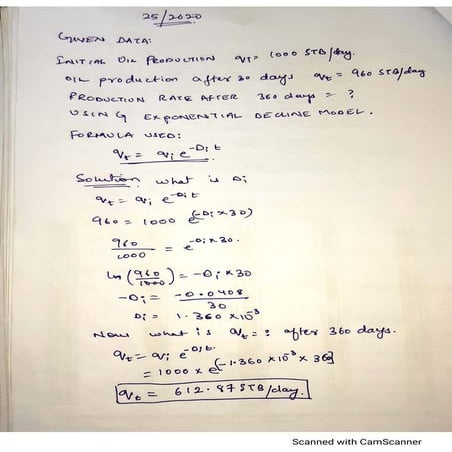 25/2020
GIVEN DATA:
INITIAL OIL PRODUCTION qi = 1000 STB/day.
OIL production after 30 days qt = 960 STB/day
PRODUCTION RATE AFTER 360 days = ?
USING EXPONENTIAL DECLINE MODEL.
FORMULA USED:
qt = qi e^-Di t
Solution what is Di
qt = qi e^-Di t
960 = 1000 e^(-Di × 30)
960/1000 = e^-Di × 30.
ln (960/1000) = -Di × 30
-Di = -0.0408/30
Di = 1.360 × 10^-3
Now what is qt = ? after 360 days.
qt = qi e^-Di t.
= 1000 × e^[-1.360 × 10^-3 × 360]
qt = 612.87 STB/day.
Scanned with CamScanner